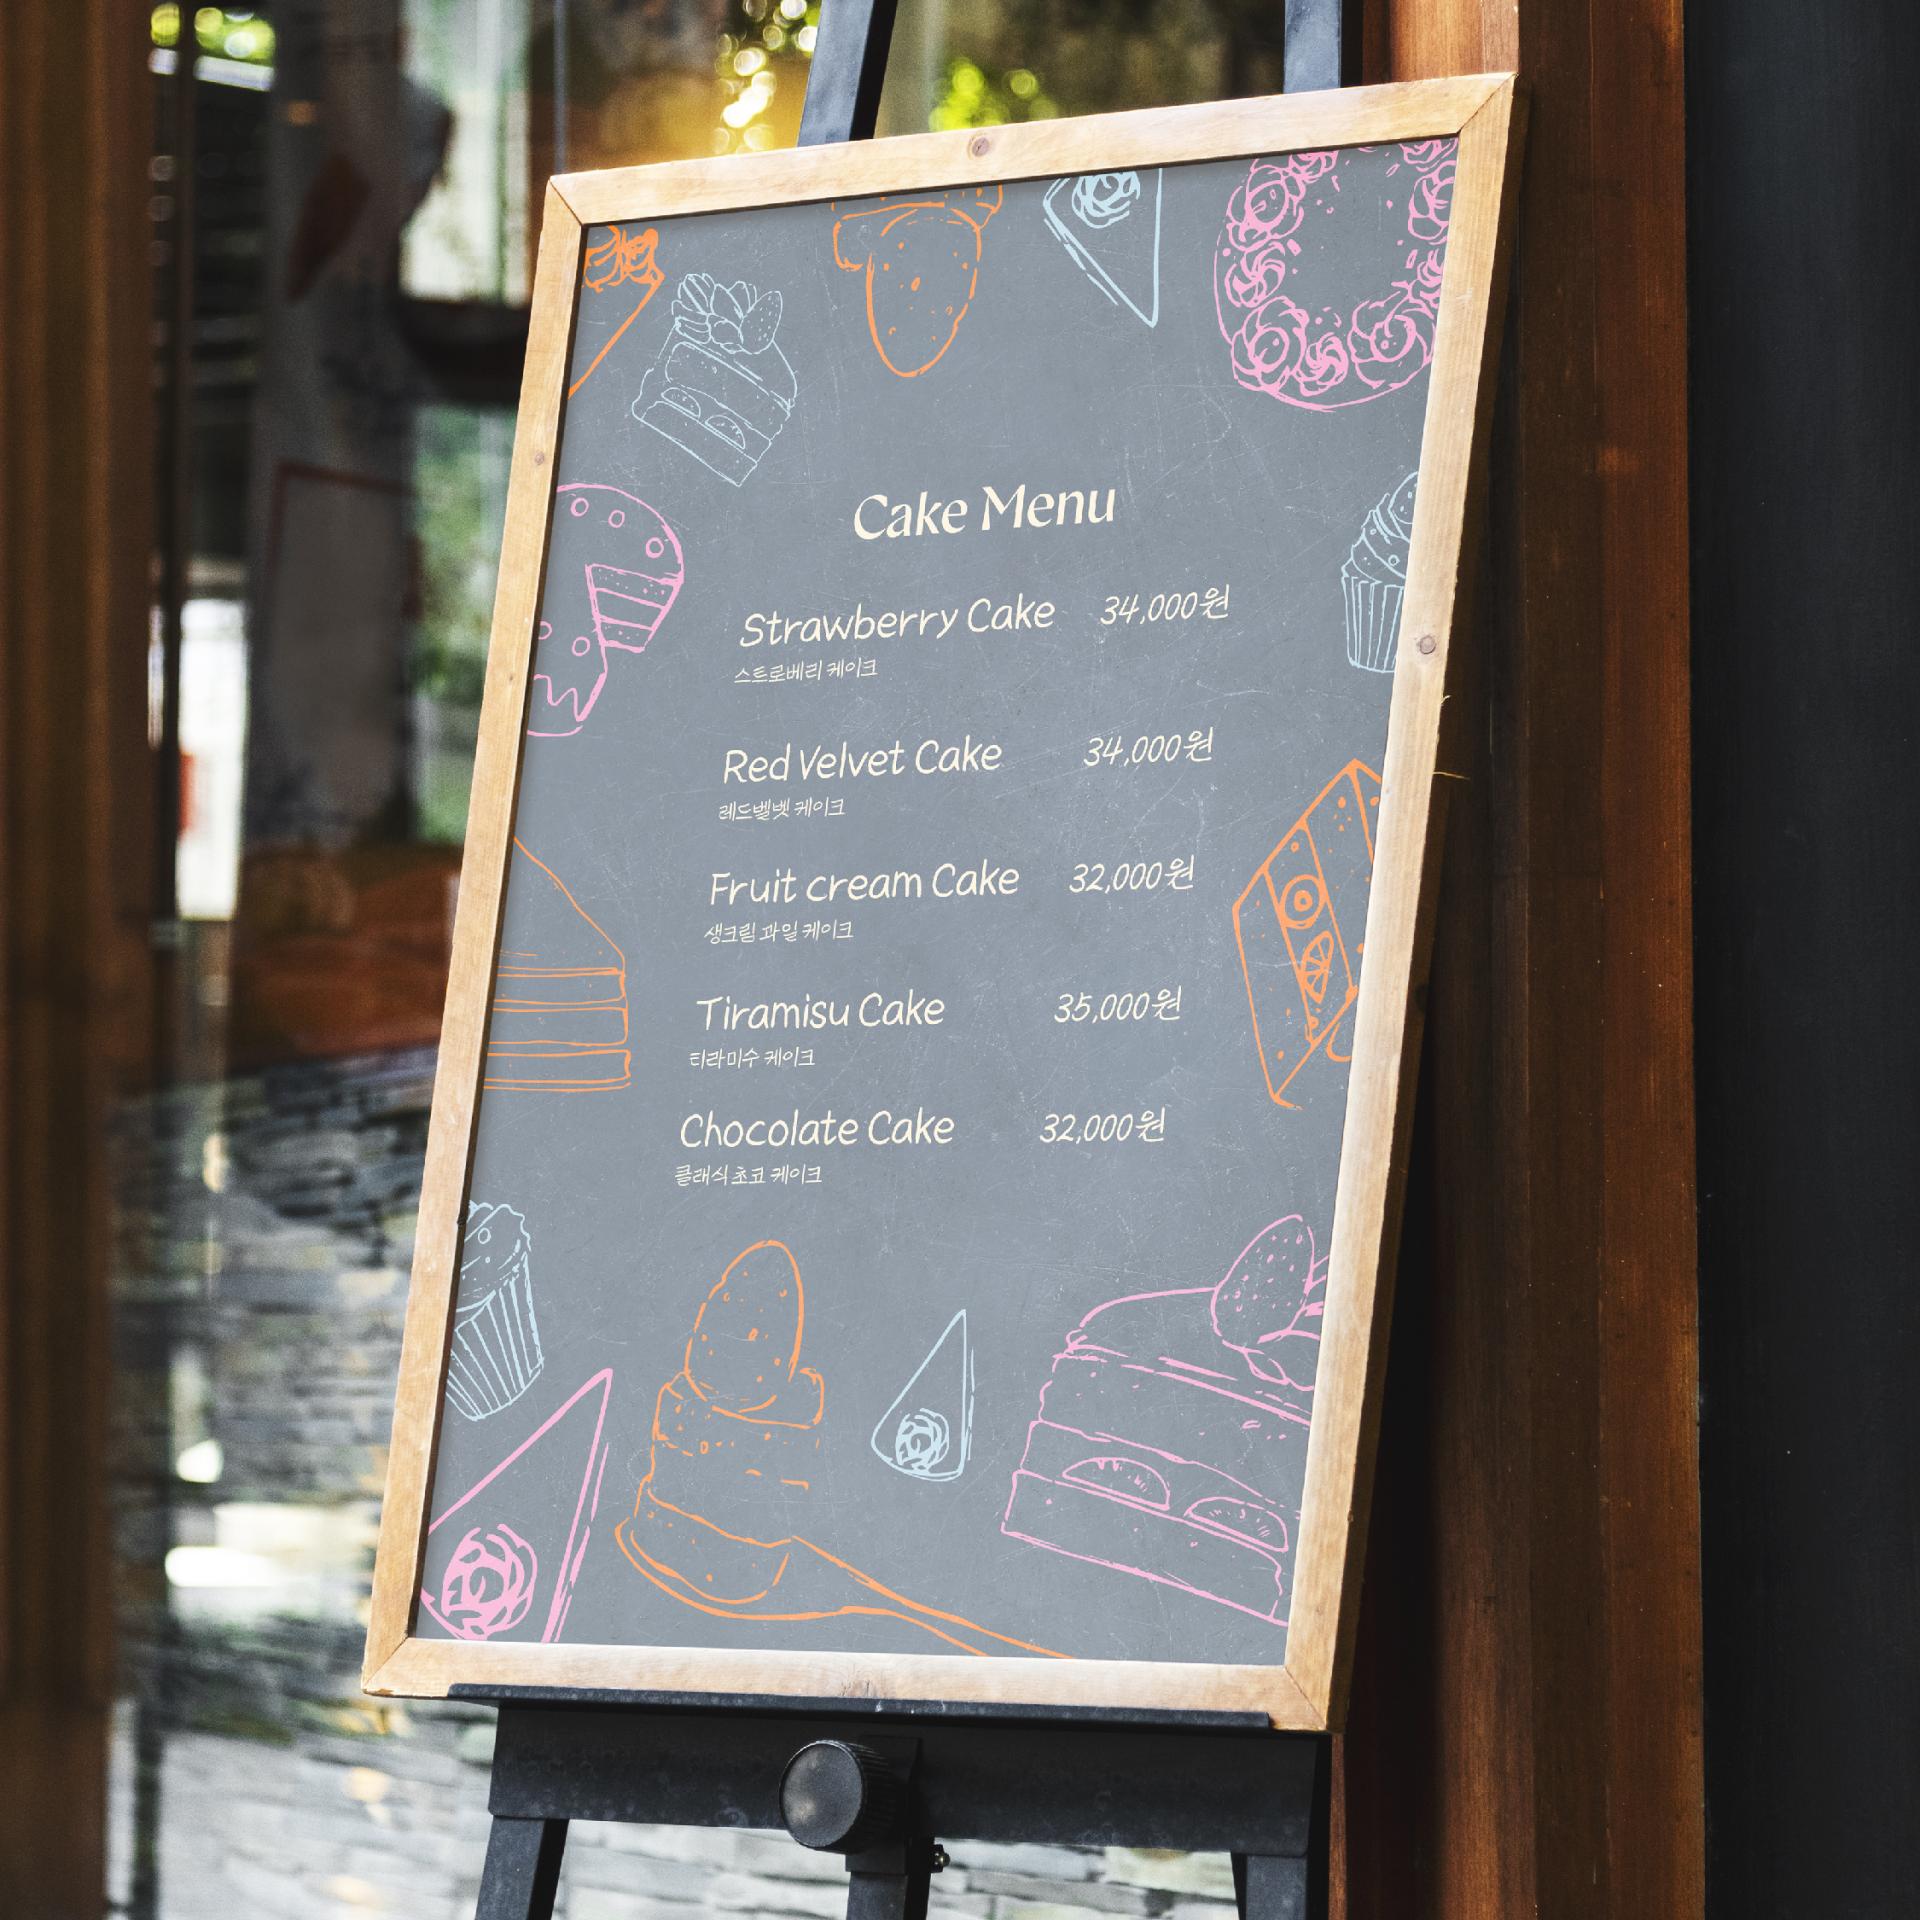 Cake Menu
Strawberry Cake 34,000원
스트로베리 케이크
Red Velvet Cake 34,000원
레드벨벳 케이크
Fruit cream Cake 32,000원
생크림 과일 케이크
Tiramisu Cake 35,000원
티라미수 케이크
Chocolate Cake 32,000원
클래식 초코 케이크